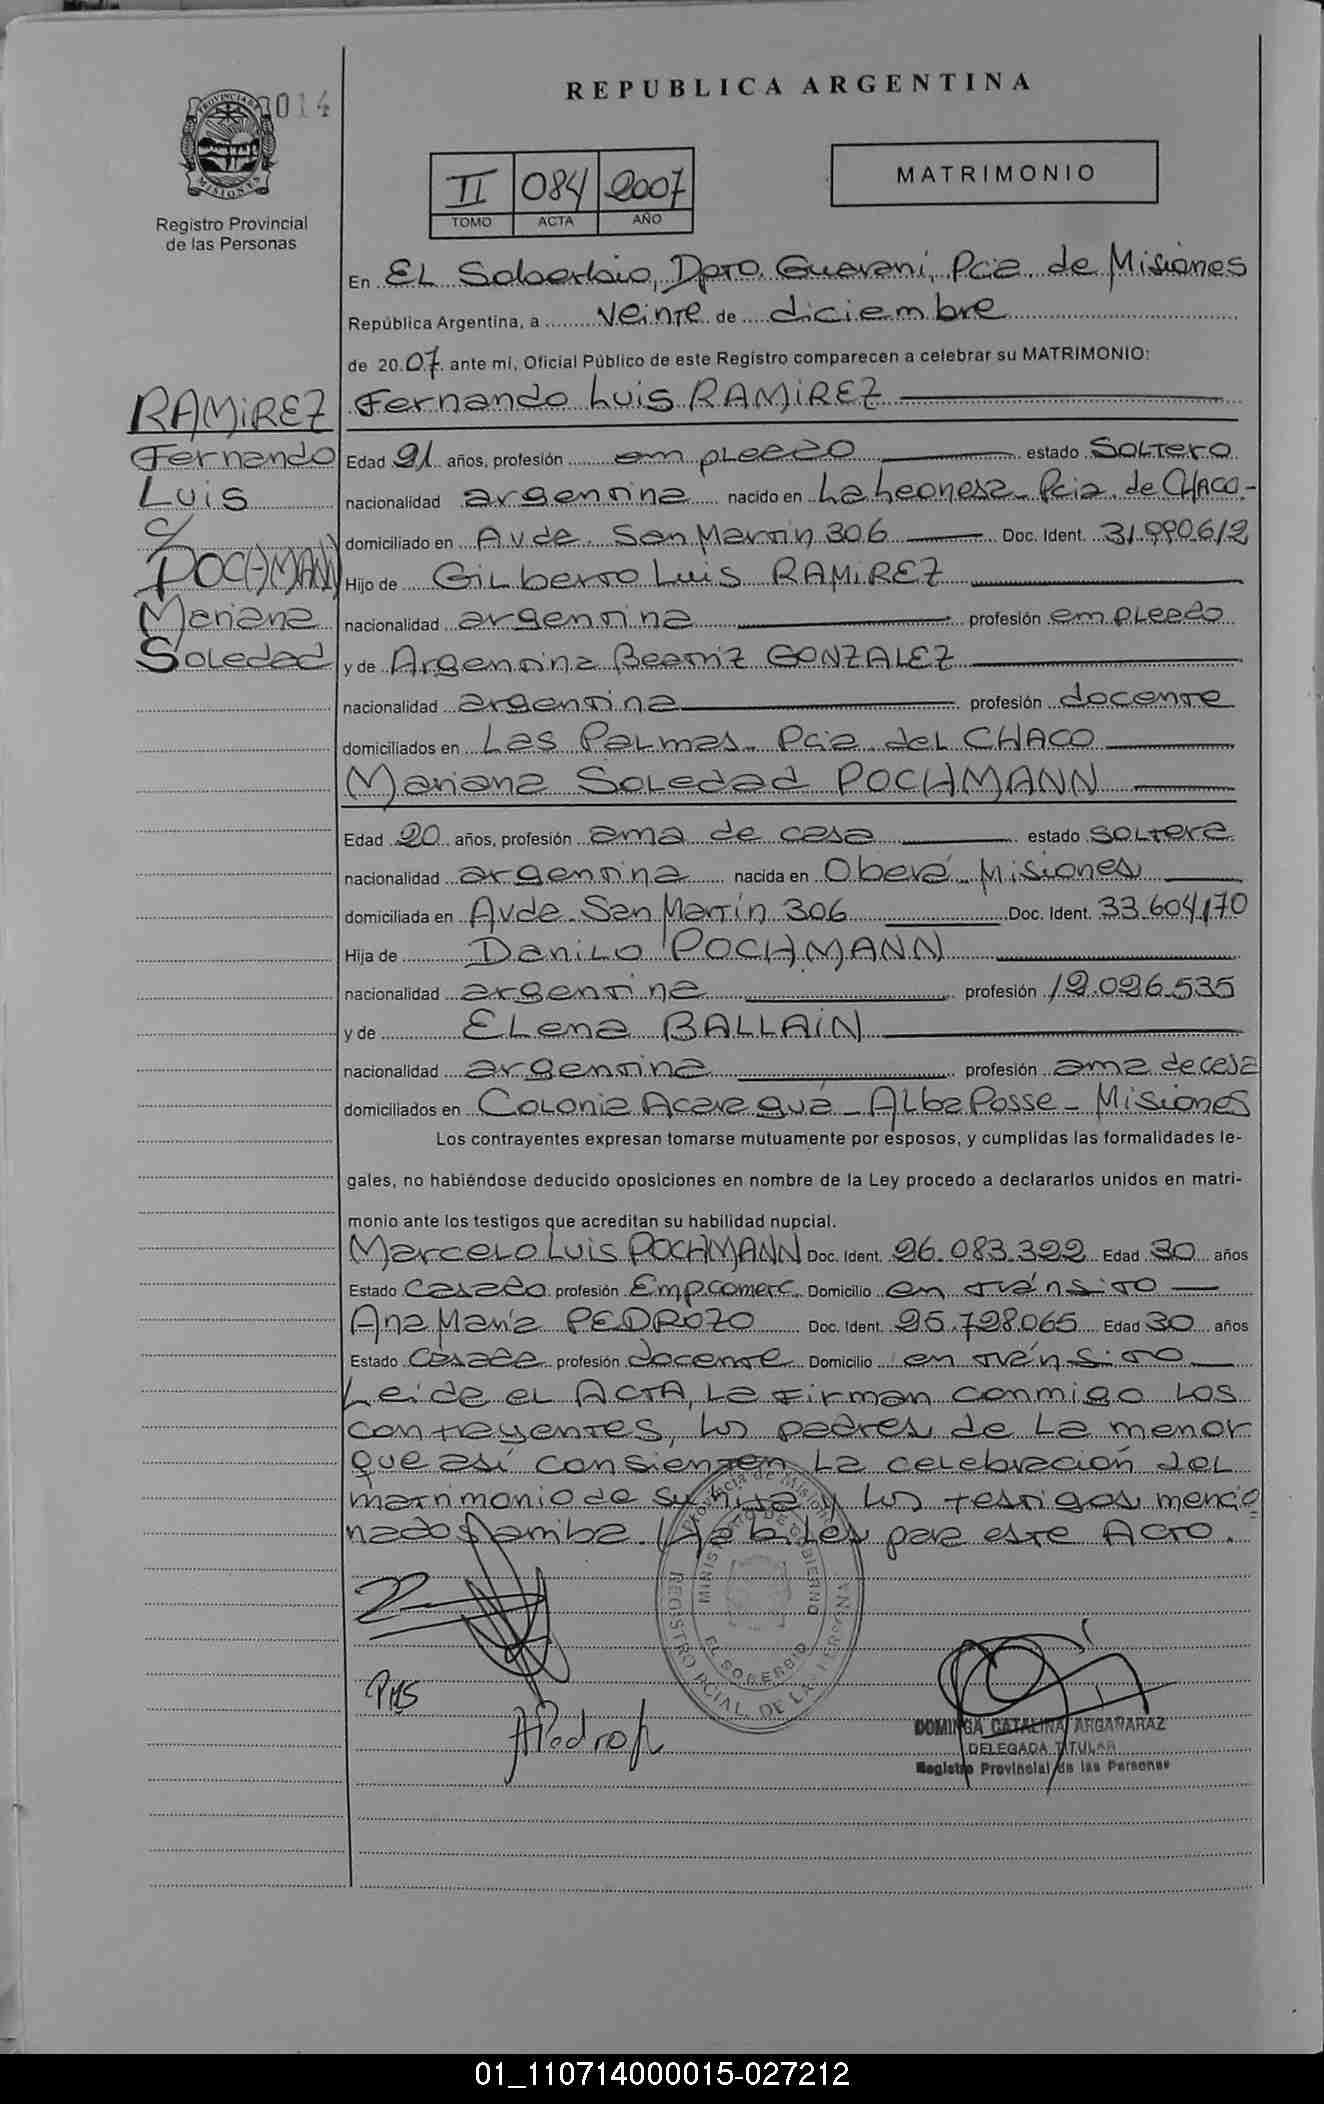 REPUBLICA ARGENTINA
014
PROVINCIA DE MISIONES
Registro Provincial
de las Personas
II 084 2007
TOMO ACTA AÑO
MATRIMONIO
En EL Soberbio, Dpto. Guaraní, Pcia de Misiones
República Argentina, a veinte de diciembre
de 20 07 ante mi, Oficial Público de este Registro comparecen a celebrar su MATRIMONIO:
RAMIREZ
Fernando
Luis
c/
POCHMANN
Mariana
Soledad
Fernando Luis RAMIREZ
Edad 21 años, profesión empleado estado soltero
nacionalidad argentina nacido en La Leonesa - Pcia. de CHACO -
domiciliado en Avda. San Martin 306 Doc. Ident.
Hijo de Gilberto Luis RAMIREZ
nacionalidad argentina profesión empleado
y de Argentina Beatriz GONZALEZ
nacionalidad argentina profesión docente
domiciliados en Las Palmas - Pcia del CHACO
Mariana Soledad POCHMANN
Edad 20 años, profesión ama de casa estado soltera
nacionalidad argentina nacida en Oberá - Misiones
domiciliada en Avda. San Martín 306 Doc. Ident. 33.604.170
Hija de Danilo POCHMANN
nacionalidad argentina profesión 12.026.535
y de Elena BALLAIN
nacionalidad argentina profesión ama de casa
domiciliados en Colonia Acaragua - Alba Posse - Misiones
Los contrayentes expresan tomarse mutuamente por esposos, y cumplidas las formalidades le-
gales, no habiéndose deducido oposiciones en nombre de la Ley procedo a declararlos unidos en matri-
monio ante los testigos que acreditan su habilidad nupcial.
Marcelo Luis POCHMANN Doc. Ident. 26.083.322 Edad 30 años
Estado casado profesión Emp.comerc. Domicilio en tránsito
Ana María PEDROZO Doc. Ident. 25.728.065 Edad 30 años
Estado casada profesión docente Domicilio en tránsito
Leída el ACTA, la firman conmigo los
contrayentes, los padres de la menor
que así consienten la celebración del
matrimonio de su hija y los testigos mencio
nados arriba. Hábiles para este Acto.
Provincia de Misiones
MINISTERIO DE GOBIERNO
EL SOBERBIO
REGISTRO PCIAL. DE LAS PERSONAS
PMS
DOMINGA CATALINA ARGAÑARAZ
DELEGADA TITULAR
Registro Provincial de las Personas
01_110714000015-027212